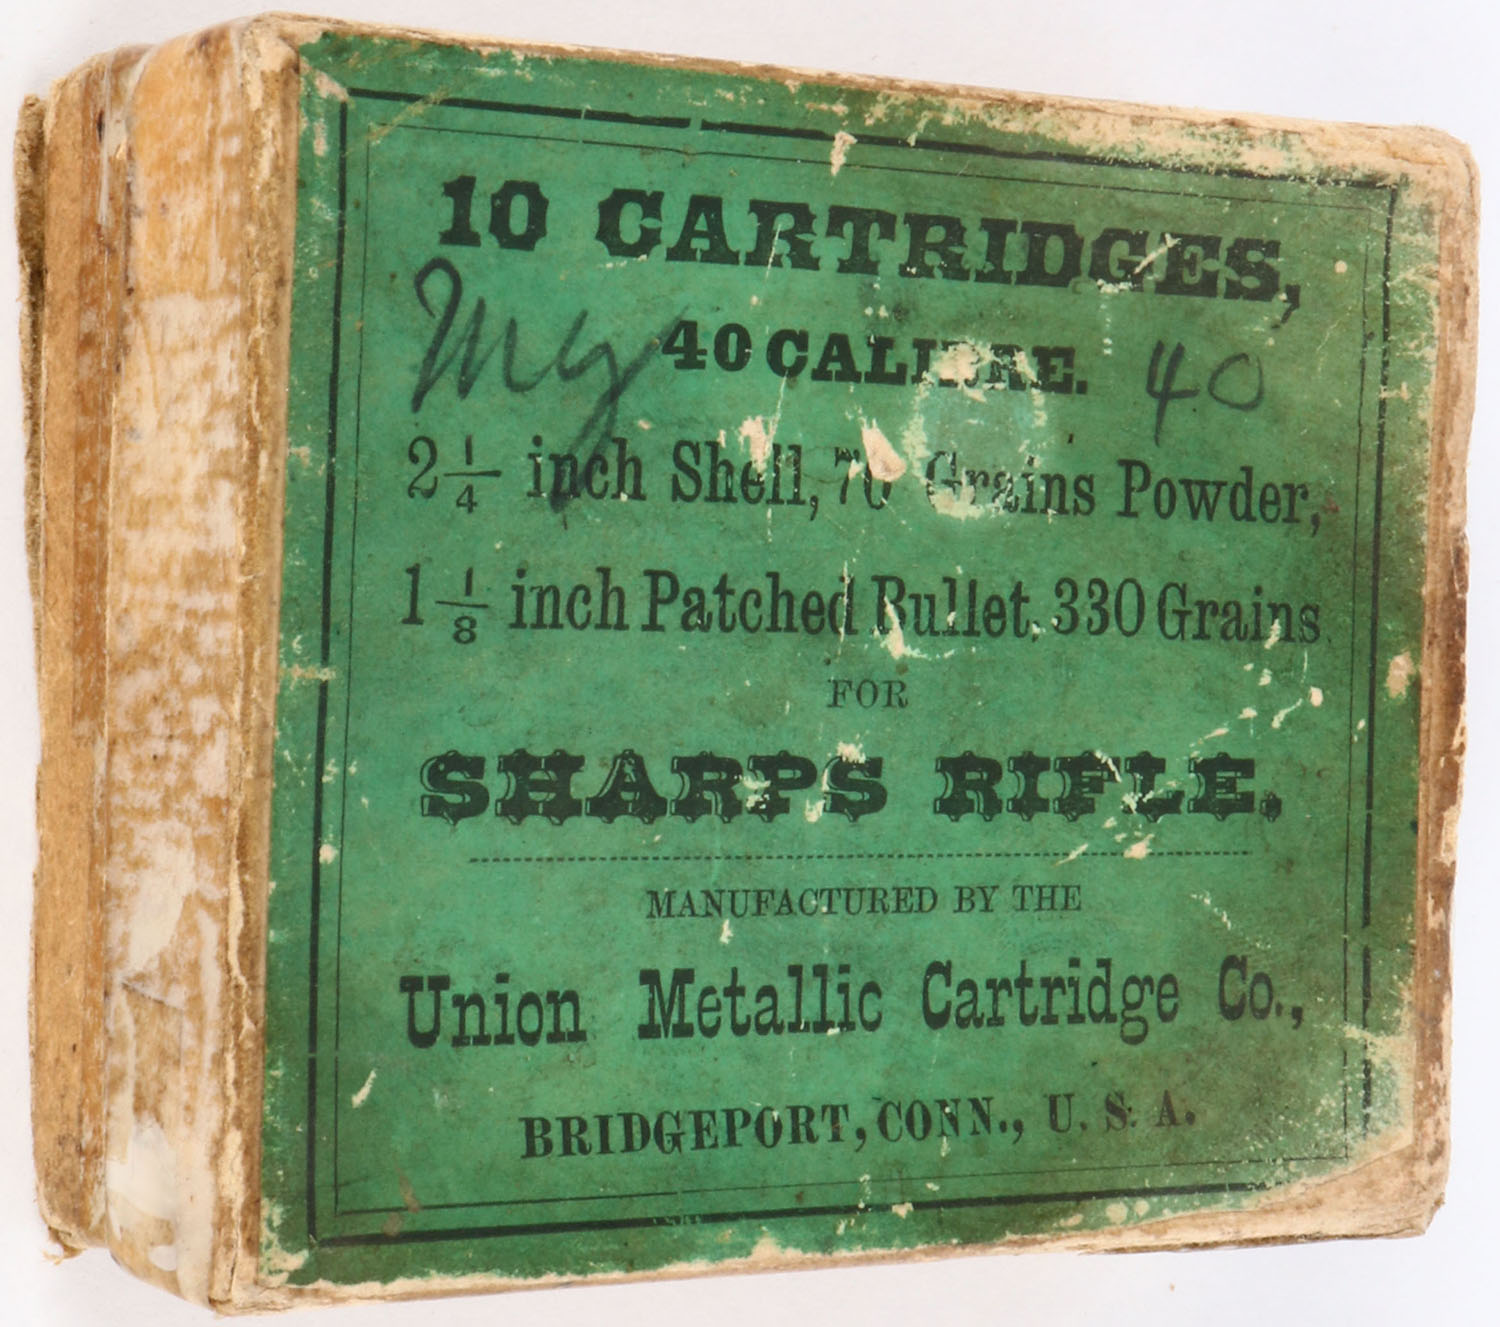 10 CARTRIDGES,
My 40 CALIBRE. 40
2 1/4 inch Shell, 70 Grains Powder,
1 1/8 inch Patched Bullet, 330 Grains
FOR
SHARPS RIFLE.
MANUFACTURED BY THE
Union Metallic Cartridge Co.,
BRIDGEPORT, CONN., U. S. A.